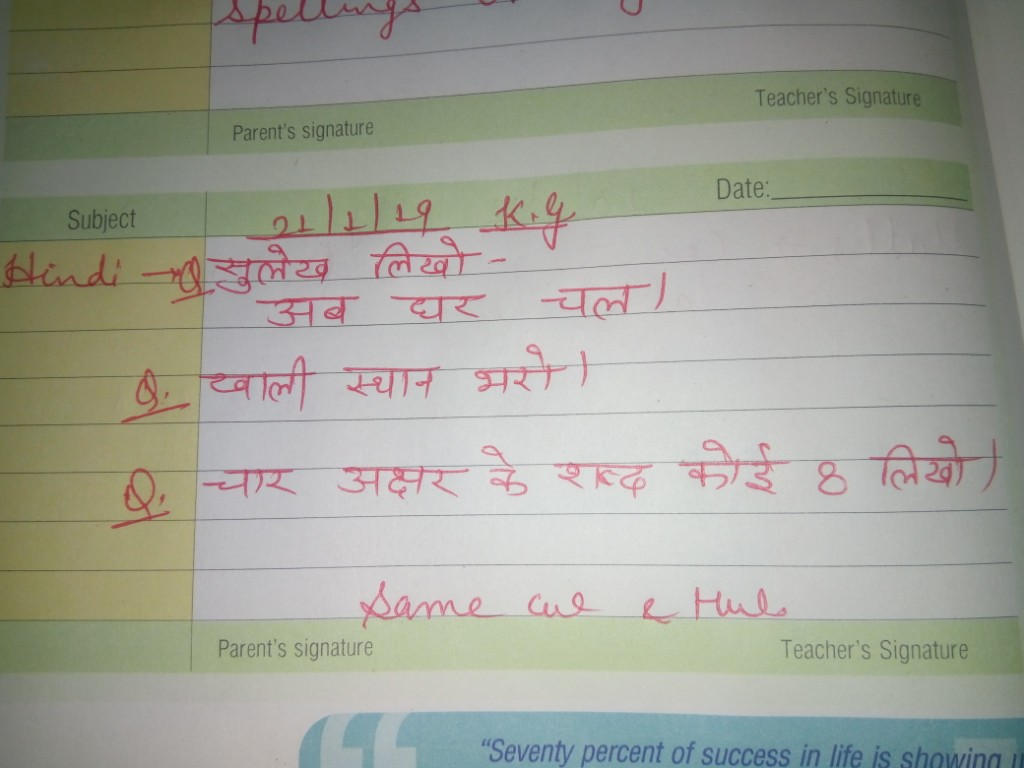 Spellings
Teacher's Signature
Parent's signature
Date:
Subject 21/1/19 K.g
Hindi → Q सुलेख लिखो -
अब घर चल।
Q. खाली स्थान भरो।
Q. चार अक्षर के शब्द कोई 8 लिखो।
Same cw & Hw
Parent's signature Teacher's Signature
"Seventy percent of success in life is showing